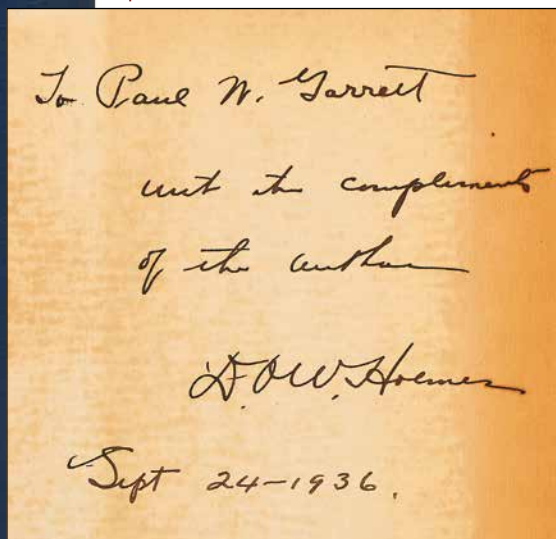 To Paul W. Garrett
with the compliments
of the author
D.O.W. Holmes
Sept 24-1936.